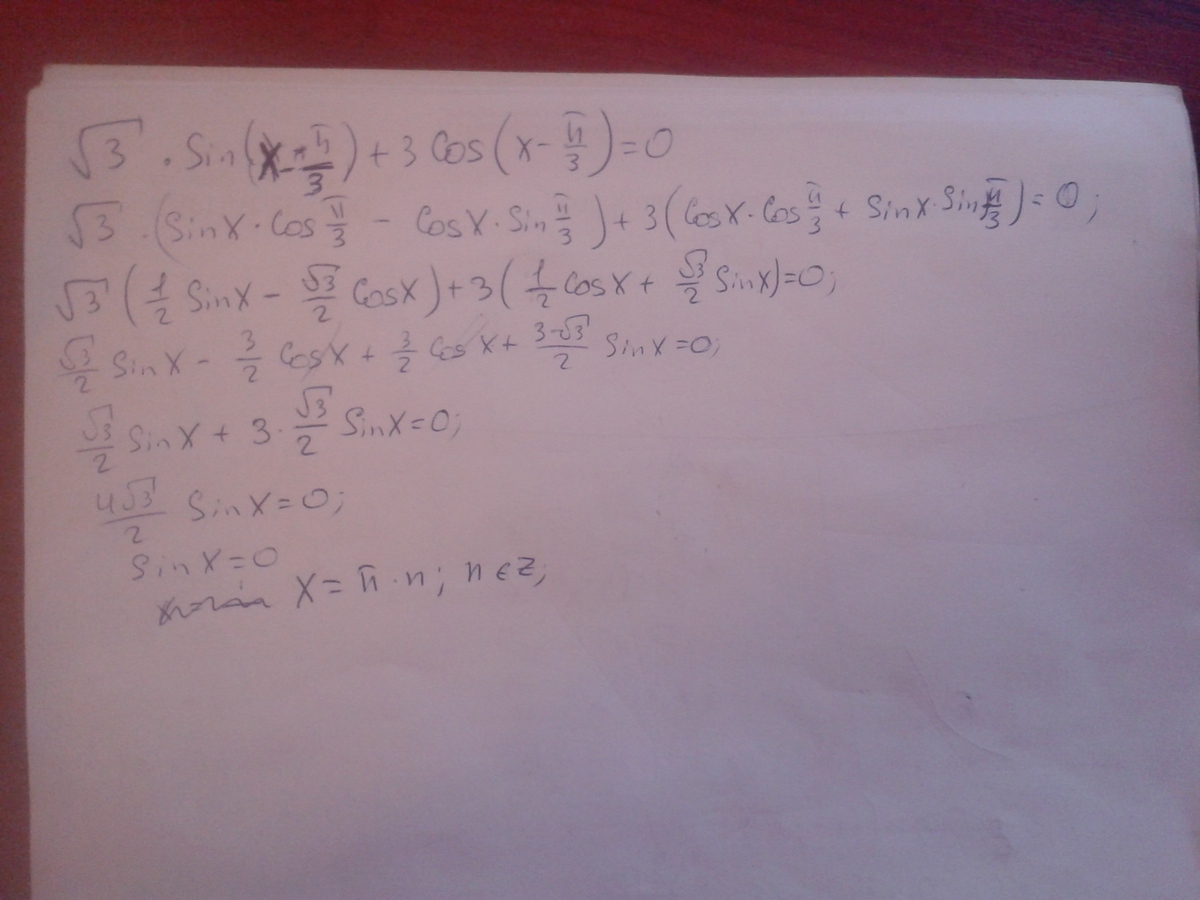 √3 · Sin(x - π/3) + 3 Cos(x - π/3) = 0
√3 · (Sinx · Cos π/3 - Cosx · Sin π/3) + 3(Cosx · Cos π/3 + Sinx · Sin π/3) = 0;
√3 (1/2 Sinx - √3/2 Cosx) + 3(1/2 Cosx + √3/2 Sinx) = 0;
√3/2 Sinx - 3/2 Cosx + 3/2 Cosx + 3·√3/2 Sinx = 0;
√3/2 Sinx + 3 · √3/2 Sinx = 0;
4√3/2 Sinx = 0;
Sinx = 0
x = π · n; n ∈ z;